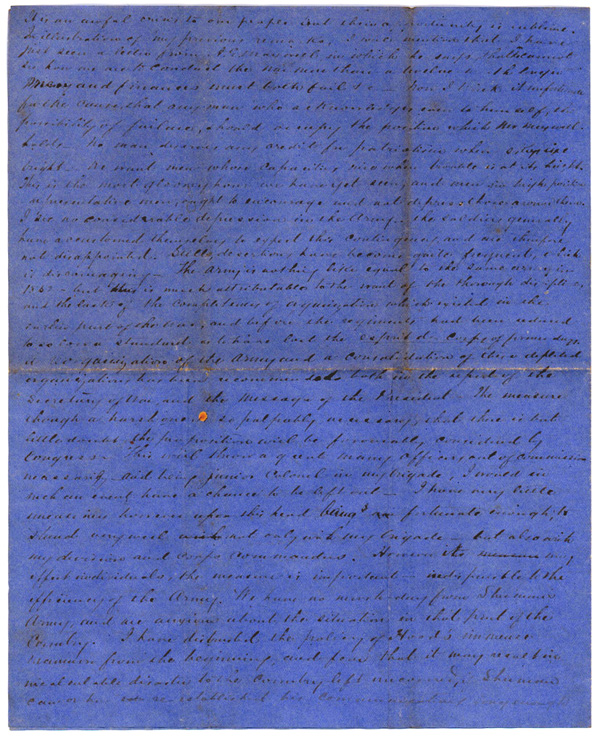 It is an awful crisis to our people but there is
in illustration of my previous remarks, I will mention that I have
just seen a letter from A. C. in which he says that he cannot
see how we are to construct the
Navy and finances must both fail &c -
for the cause, that any man who acknowledges even to himself, the
possibility of failure, should occupy the position which
holds. No man deserves any credit for patriotism when
bright. We want men whose capacities
This is the most gloomy hour we have yet seen, and men in high position
representative men, ought to encourage and not depress those around them.
I see no considerable depression in the Army - the soldiers generally
have accustomed themselves to expect this contingency and are therefore
not disappointed. Still desertions have become quite frequent, which
is discouraging - The Army is nothing like equal to the same army in
1863 - but this is much attributable to the want of the through discipline
and the lack of the completeness of organization which existed in the
earlier part of the war and before the regiments had been reduced
to so low a standard as to have lost the esprit de Corps of former days.
A re organization of the Army and a consolidation of these depleted
organizations has been recommended both in the report of the
Secretary of War and the Message of the President - The measure
though a harsh one is so palpably necessary, that there is but
little doubt the proposition will be favorably considered by
Congress - This will throw a great many Officers out of Commission
necessarily - and being junior Colonel in my Brigade, I would in
such an event have a chance to be left out - I have very little
uneasiness however upon this head being so fortunate enough, to
stand very well not only with my brigade - but also with
my division and corps commanders. However the measure may
effect individuals, the measure is important - indispensible to the
efficiency of the Army. We have no news to day from Sherman's
Army, and are anxious about the situation in that part of the
Country. I have distrusted the policy of Hood's
maneuver from the beginning, and fear that it may result in
incalculable disaster to the Country left uncovered. Sherman
can